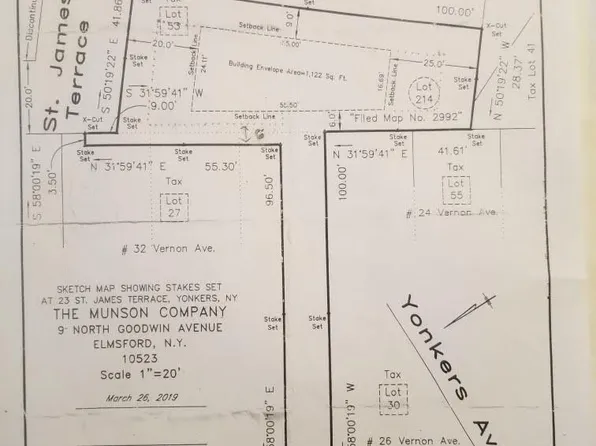 Discontin
St. James
Terrace
S 50°19'22" E 41.86
Tax
Lot
53
Setback Line
9.0'
100.00'
X-Cut
Set
20.0'
Stake
Set
Setback Line
24.11'
Building Envelope Area=1,122 Sq. Ft.
16.69'
25.0'
Stake
Set
Lot
214
N 50°19'22" W
28.37'
Tax Lot 41
20.0'
S 31°59'41" W
9.00'
X-Cut
Set
Stake
Set
Setback Line
6.0'
"Filed Map No. 2992"
Stake
Set
S 58°00'19" E
3.50'
Stake
Set
Stake
Set
Stake
Set
N 31°59'41" E 55.30'
N 31°59'41" E 41.61'
Tax
Lot
27
96.50'
100.00'
Tax
Lot
55
# 24 Vernon Ave.
# 32 Vernon Ave.
SKETCH MAP SHOWING STAKES SET
AT 23 ST. JAMES TERRACE, YONKERS, NY
THE MUNSON COMPANY
9 NORTH GOODWIN AVENUE
ELMSFORD, N.Y.
10523
Scale 1"=20'
March 26, 2019
Stake
Set
Stake
Set
Yonkers
Tax
Lot
30
8°00'19" E
58°00'19" W
# 26 Vernon Ave.